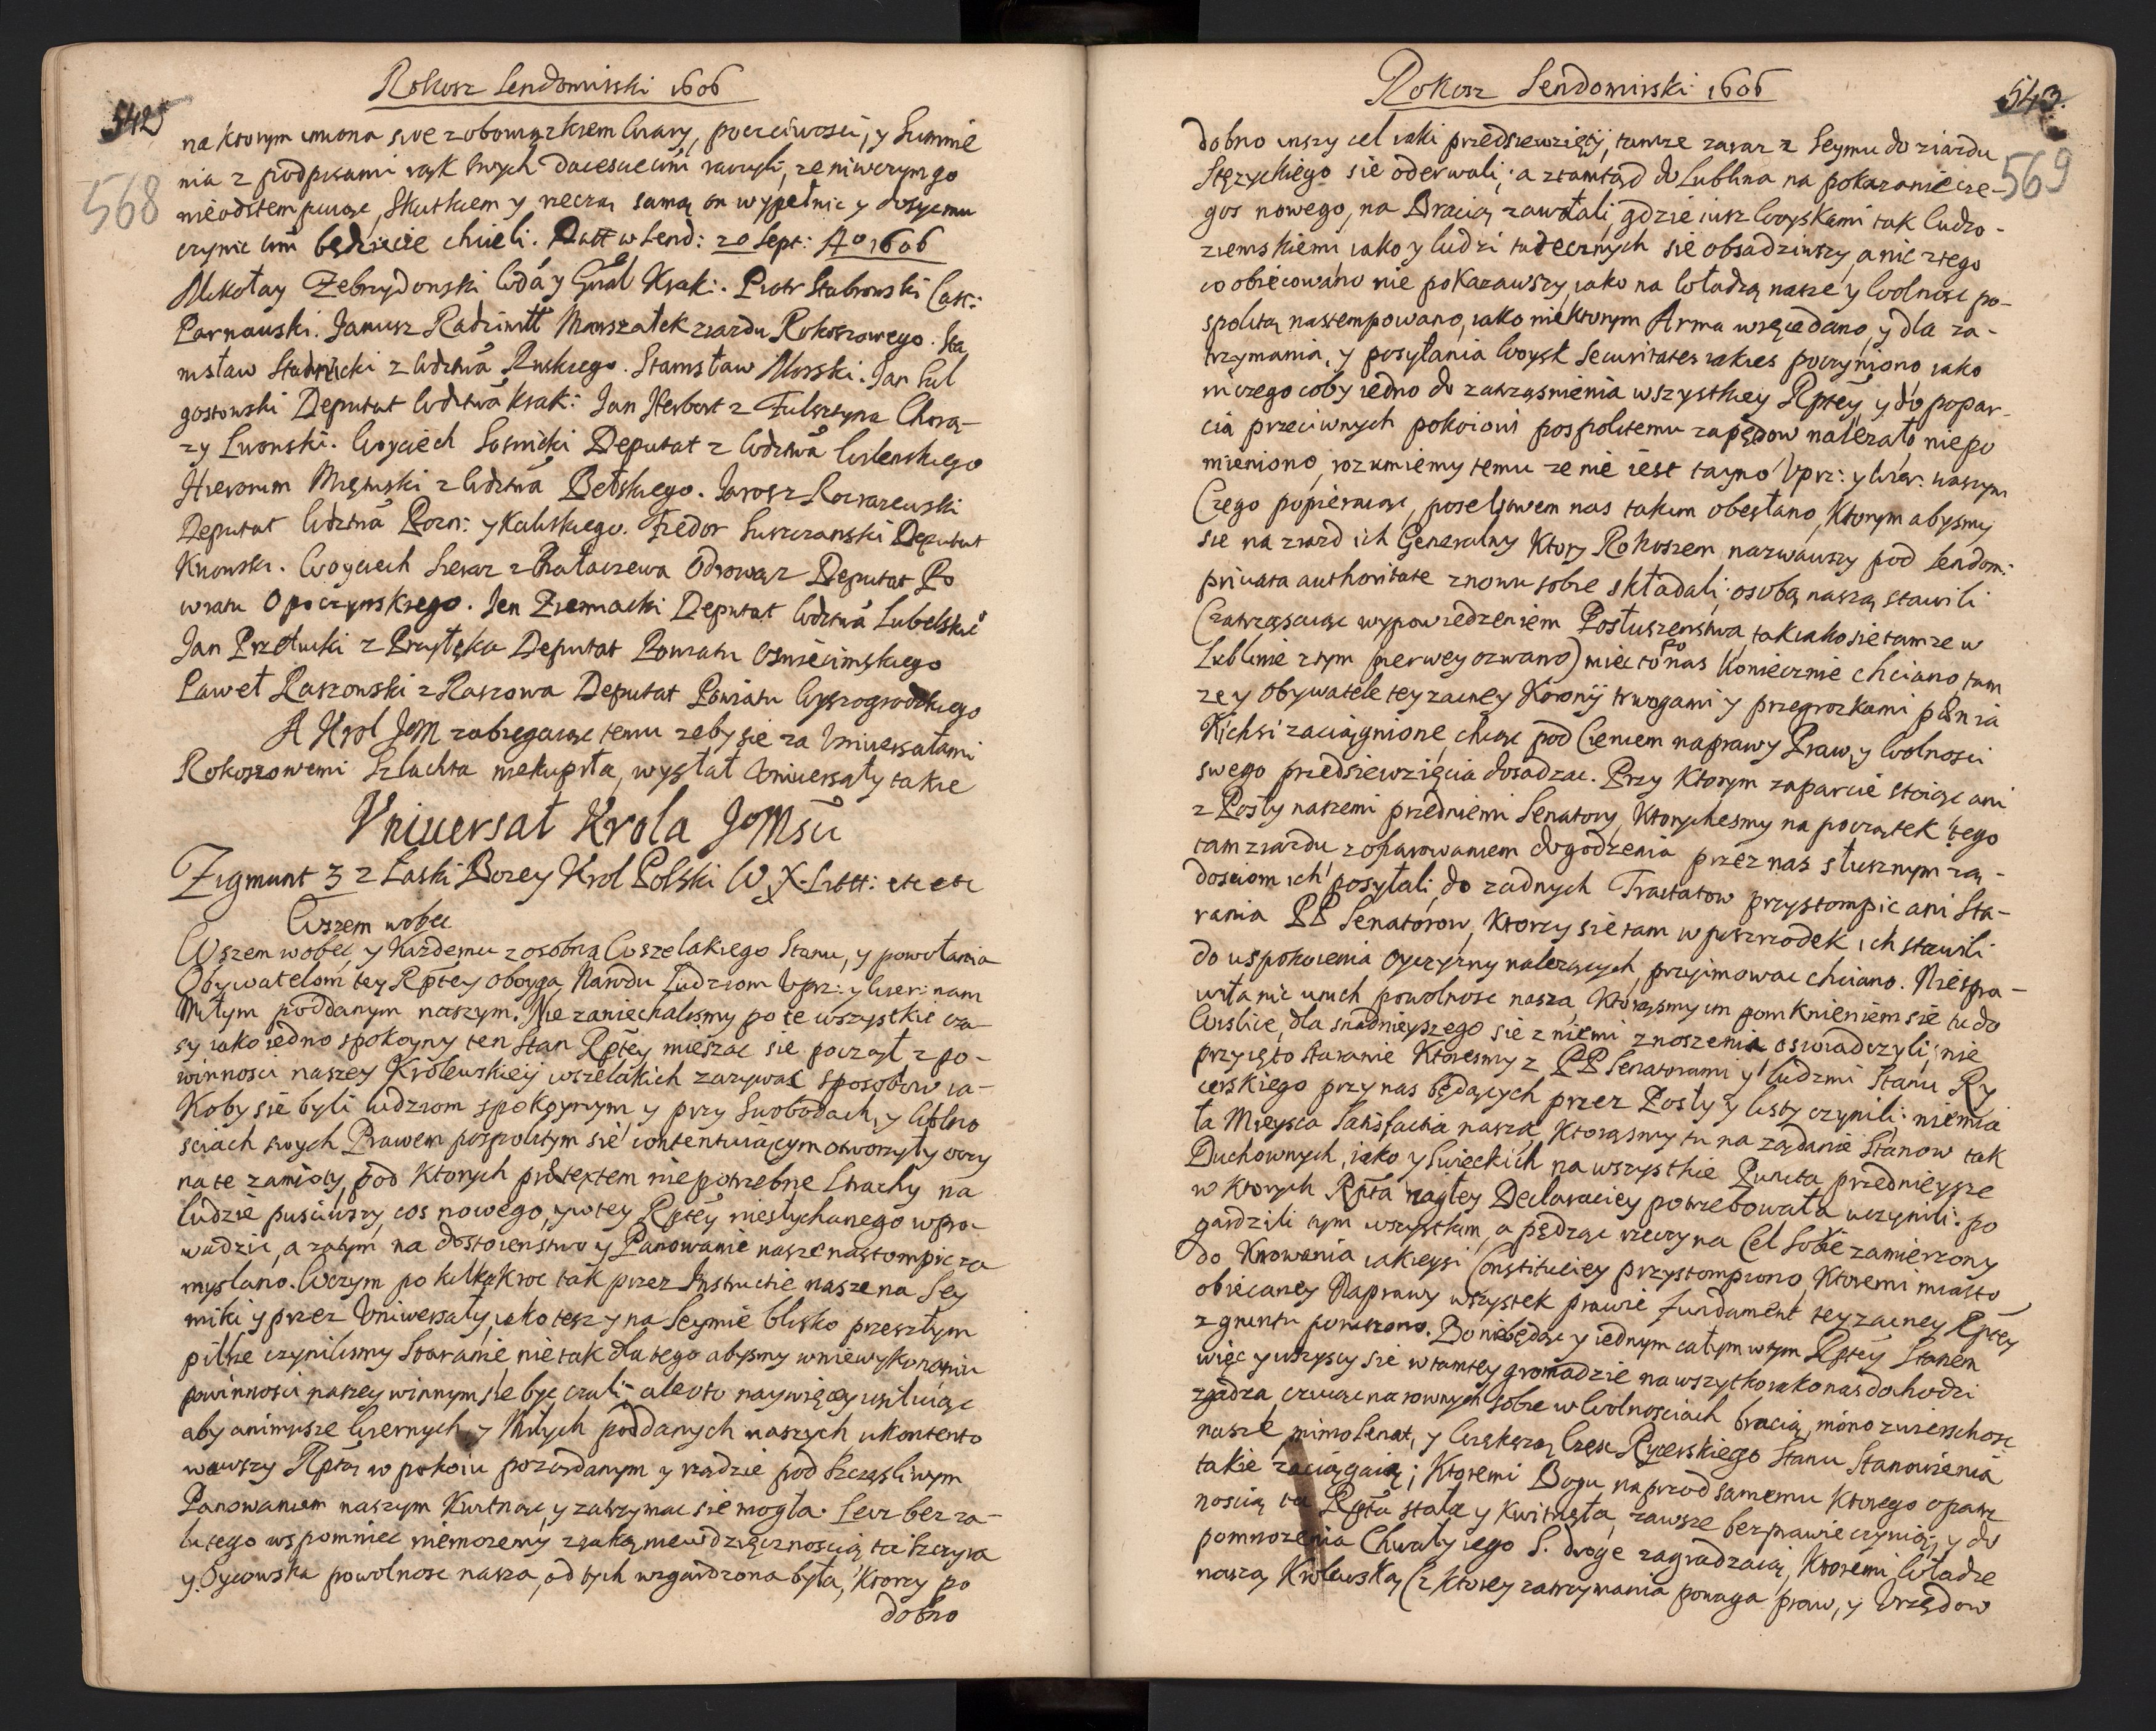 Rokosz Sendomirski 1606
542
568
na ktorym imiona swe z obowiązkiem Wiary, poczciwosci, y Sumnie
nia z podpisami rąk swych dacescie им raczyli, ze niwczym go
nieodstempuiąc, Skutkiem y rzeczą samą on wypełnic y dosycmu
czynic będziecie chcieli. Datt w Send: 20 Sept: A° 1606
Mikołay Zebrzydowski Wda y Grał Krak: Piotr Stabrowski Cast:
Parnauski. Janusz Radziwiłł Marszałek ziazdu Rokoszowego. Sta
nisław Stadnicki z Wdztwa Ruskiego. Stanisław Morski. Jan Sul
gostowski Deputat Wdztwa Krak: Jan Herbort z Fulsztyna Chorą-
zy Lwowski. Woyciech Sosnicki Deputat z Wdztwa Wilenskiego
Hieronim z Wdztwa Bełskiego. Jarosz Rozrazewski
Deputat Wdztwa Pozn: y Kaliskiego. Fiedor Suszczanski Deputat
Kiiowski. Woyciech Siekarz z Odrowąz Deputat Po
wiatu Opoczynskiego. Jen Ziemacki Deputat Wdztwa Lubelskie
Jan Przełucki z Przyłęka Deputat Powiatu Oswiecimskiego
Paweł Raszowski z Raszowa Deputat Powiatu Wyszogrodzkiego
A Krol JeM zabiegaiąc temu zeby się za Uniuersałami
Rokoszowemi Szlachta niekupiła, wysłał Uniuersały takie
Vniuersał Krola JoMsci
Zigmunt 3 z Łaski Bozey Krol Polski W X. Litt: etc etc
Wszem wobec
Wszem wobec, y Kazdemu zosobna Wszelakiego Stanu, y powołania
Obywatelom tey Rptey oboyga Narodu Ludziom Uprz: y Wier: nam
Miłym poddanym naszym. Nie zaniechalismy po te wszystkie cza-
sy iako iedno spokoyny ten Stan Rptey mieszac się począł z po-
winnosci naszey Krolewskiey wszelakich zazywac sposobow ia-
Koby się byli ludziom spokoynym y przy Swobodach, y Wolno
sciach swych Prawem pospolitym się contentuiącym otworzyły oczy
na te zamioty, pod Ktorych pretextem niepotrzebne Strachy na
ludzie pusciwszy, cos nowego, y wtey Rptey niesłychanego wpro
wadzic, a zatym na dostoienstwo y Panowanie nasze nastompic za
myslano. Wczym po kilkakroc tak przez Instructie nasze na Sey
miki y przez Uniwersały, iako tesz y na Seymie blisko przeszłym
pilne czynilismy Staranie nie tak dlatego abysmy w niewykonaniu
powinnosci naszey winnym się byc czuli, ale oto naywięcey usiłuiąc
aby animusze Wiernych y Miłych poddanych naszych ukontento
wawszy Rpta w pokoiu poządanym y rządzie pod Szczęsliwym
Panowaniem naszym Kwitnąc, y zatrzymac się mogła. Lecz bez za-
lu tego wspomniec niemozemy z iaką niewdzięcznoscią ta Szczyra
y Oycowska powolnosc nasza, od tych wzgardzona była, Ktorzy po
dobno
Rokosz Sendomirski 1606
543.
569
dobno inszy cel iaki przedsiewzięty, tamze zaraz z Seymu do ziazdu
Stęzyckiego sie oderwali; a ztamtąd do Lublina na pokazanie cze-
gos nowego, na Bracią zawołali, gdzie iusz Woyskami tak Cudzo-
ziemskiemi iako y ludzi tutecznych sie obsadziwszy, a nic z tego
co obiecowano nie pokazawszy, iako na Władzą nasze y Wolnosc po-
spolitą nastempowano, iako niektorym Arma w ręce dano, y dla za-
trzymania, y posyłania Woysk Securitates iakies poczyniono iako
niczego coby iedno do zatrząsnienia wszystkiey Rptey, y do popar-
cia przeciwnych pokoiowi pospolitemu zapędow nalezało, niepo
mieniono, rozumiemy temu ze nie iest tayno Uprz: y Wier: waszym
Czego popieraiąc, poselstwem nas takim obesłano, Ktorym abysmy
sie na ziazd ich Generalny Ktory Rokoszem nazwawszy pod Sendom:
priuata authoritate znowu sobie składali; osobą naszą stawili
(zatrząsaiąc wypowiedzeniem Posłuszenstwa, tak iako sie tamze w
Lublinie z tym pierwey ozwano) miec to po nas Koniecznie chciano, tam
ze y Obywatele tey zacney Korony trwogami y przegrozkami pisnia
Kichsi zaciągnione, chcąc pod Cieniem naprawy Praw, y Wolnosci
swego przedsiewzięcia dosadzac. Przy Ktorym zaparcie stoiąc ani
z Posły naszemi przedniemi Senatory, Ktorychesmy na początek tego
tam ziazdu z ofiarowaniem dogodzenia przez nas słusznym zą-
dosciom ich posyłali, do zadnych Tractatow przystompic ani Sta-
rania PP Senatorow, Ktorzy sie tam w poszrzodek ich stawili
do uspokoienia oyczyzny nalezących, przyimowac chciano. Niespra-
wiła nic unich powolnosc nasza, Ktorąsmy im pomknieniem sie tu do
Wislice, dla snadnieyszego się z niemi znoszenia oswiadczyli; nie
przyięto Staranie Ktoresmy z PP Senatorami y ludzmi Stanu Ry
cerskiego przy nas będących przez Posły y listy czynili; niemia
ła Mieysca Satisfactia nasza, Ktorąsmy tu na ządanie Stanow tak
Duchownych, iako y Swieckich na wszystkie Puncta przednieysze
w Ktorych Rpta nagłey Declaraciey potrzebowała uczynili; po
gardzili tym wszystkim, a pędząc rzeczy na Cel Sobie zamierzony
do Knowania iakieysi Constituciey przystompiono, Ktoremi miasto
obiecaney Naprawy wszystek prawie fundament tey zacney Rptey
z gruntu poruszono. Bo niebędąc y iednym całym w tym Rptey Stanem
więc y wszyscy się w tamtey gromadzie na wszytko iako nas dohodzi
zgadza, czuiąc na rownych sobie w Wolnosciach bracią, mimo zwierzchosc
nasze, mimo Senat, y Większą Częsc Rycerskiego Stanu Stanowienia
takie zaciągaią; Ktoremi Bogu naprzod samemu Ktorego opatrz
noscią ta Rpta stała y Kwitnęła, zawsze bezprawie czynią, y do
pomnozenia Chwały iego S. droge zagradzaią, Ktoremi Władze
naszą Krolewską (z ktorey zatrzymania powaga praw, y Urzędow